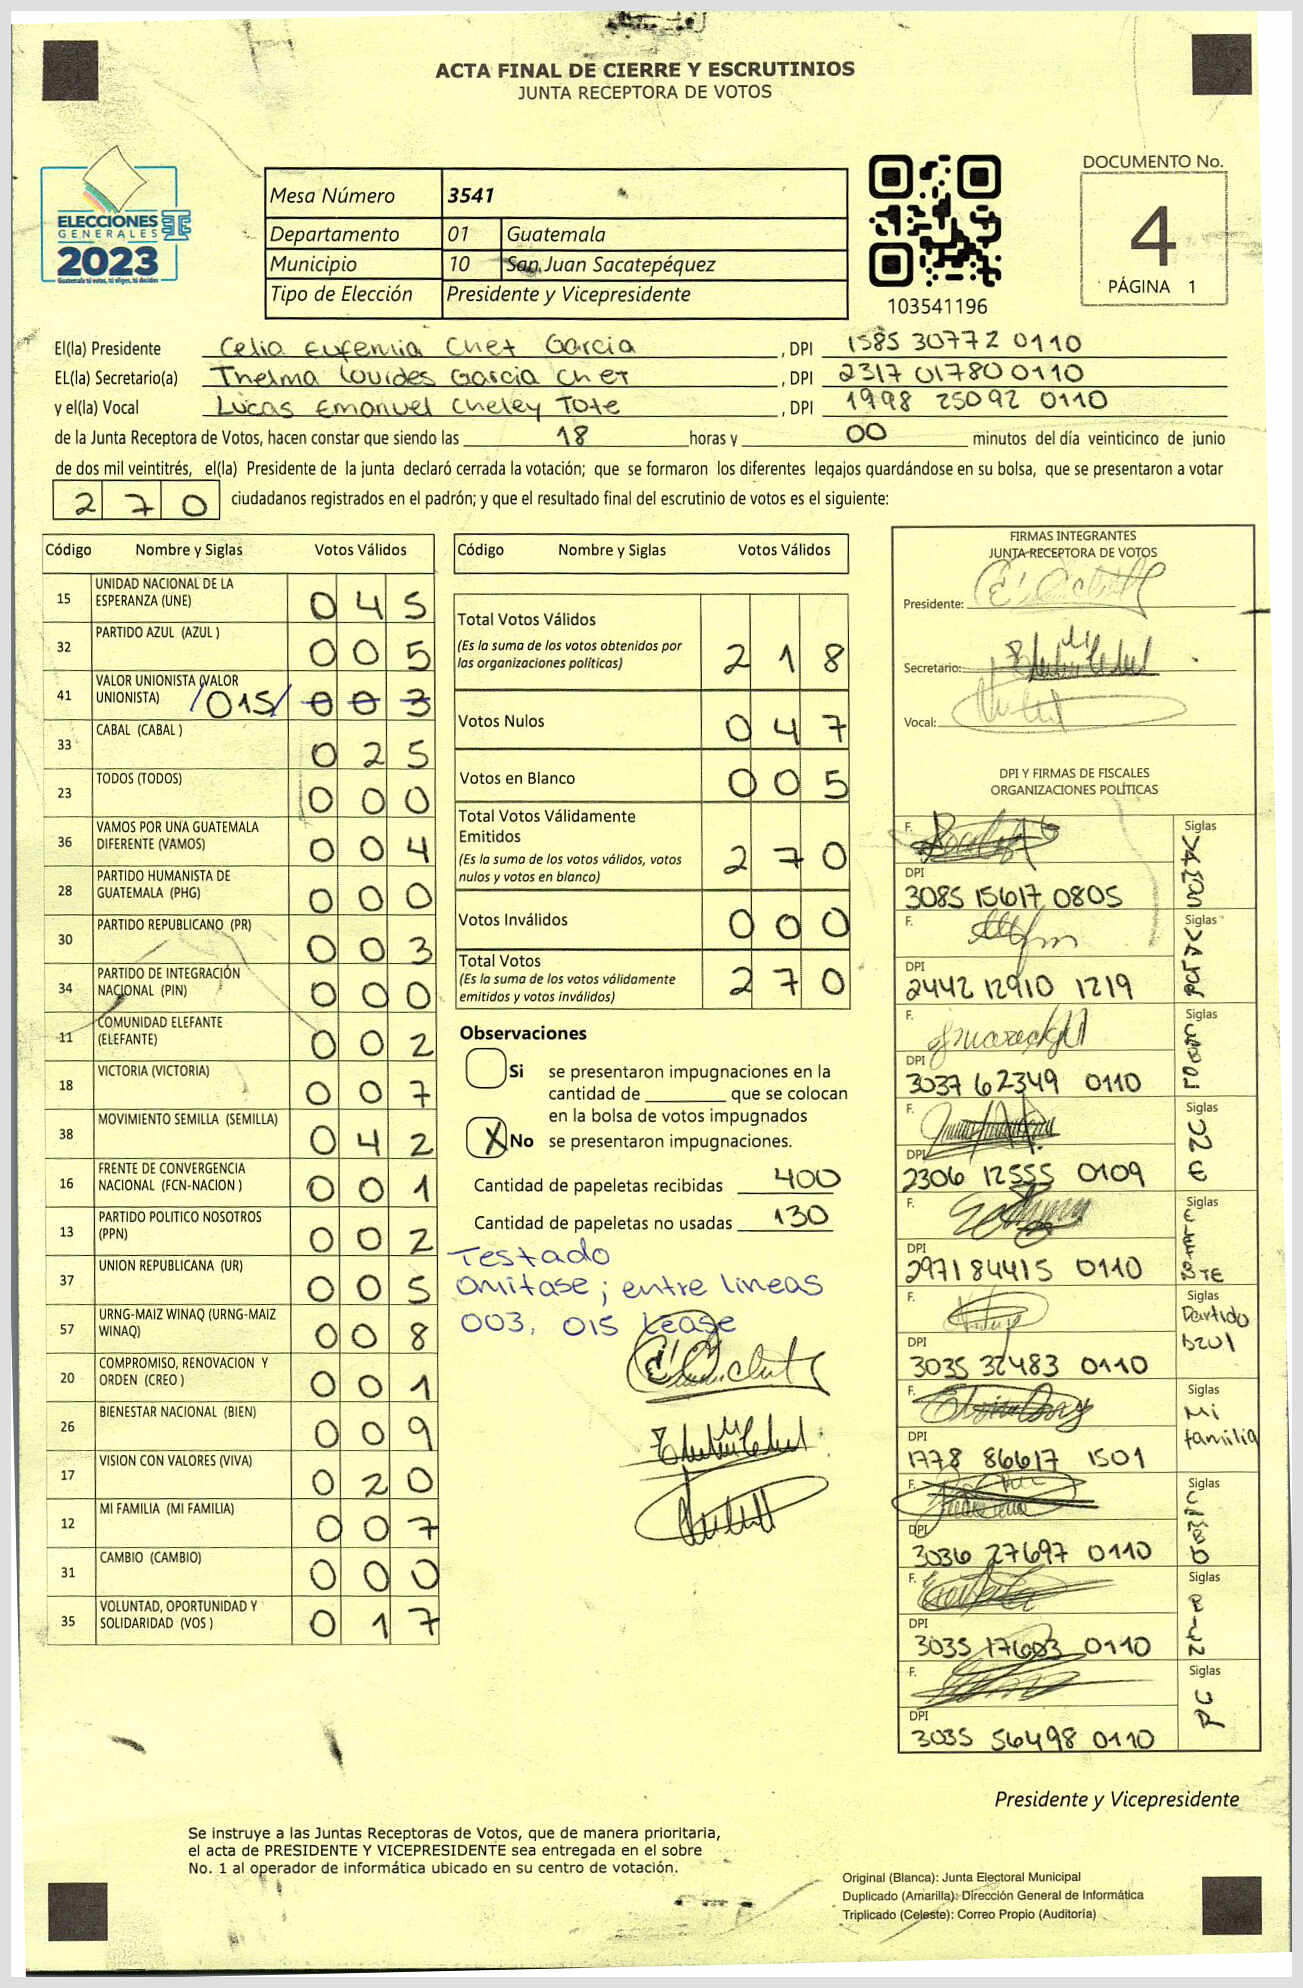 ACTA FINAL DE CIERRE Y ESCRUTINIOS
JUNTA RECEPTORA DE VOTOS
ELECCIONES
GENERALES
2023
Guatemala tú votas, tú eliges, tú decides
Mesa Número 3541
Departamento 01 Guatemala
Municipio 10 San Juan Sacatepéquez
Tipo de Elección Presidente y Vicepresidente
103541196
DOCUMENTO No.
4
PÁGINA 1
El(la) Presidente Celia Eufemia Chet Garcia , DPI 1585 30772 0110
EL(la) Secretario(a) Thelma Lourdes Garcia Chet , DPI 2317 01780 0110
y el(la) Vocal Lucas Emanuel Cheley Tote , DPI 1998 25092 0110
de la Junta Receptora de Votos, hacen constar que siendo las 18 horas y 00 minutos del día veinticinco de junio
de dos mil veintitrés, el(la) Presidente de la junta declaró cerrada la votación; que se formaron los diferentes legajos guardándose en su bolsa, que se presentaron a votar
270 ciudadanos registrados en el padrón; y que el resultado final del escrutinio de votos es el siguiente:
Código Nombre y Siglas Votos Válidos
15 UNIDAD NACIONAL DE LA ESPERANZA (UNE) 045
32 PARTIDO AZUL (AZUL ) 005
41 VALOR UNIONISTA (VALOR UNIONISTA) /015/ 003
33 CABAL (CABAL ) 025
23 TODOS (TODOS) 000
36 VAMOS POR UNA GUATEMALA DIFERENTE (VAMOS) 004
28 PARTIDO HUMANISTA DE GUATEMALA (PHG) 000
30 PARTIDO REPUBLICANO (PR) 003
34 PARTIDO DE INTEGRACIÓN NACIONAL (PIN) 000
11 COMUNIDAD ELEFANTE (ELEFANTE) 002
18 VICTORIA (VICTORIA) 007
38 MOVIMIENTO SEMILLA (SEMILLA) 042
16 FRENTE DE CONVERGENCIA NACIONAL (FCN-NACION ) 001
13 PARTIDO POLITICO NOSOTROS (PPN) 002
37 UNION REPUBLICANA (UR) 005
57 URNG-MAIZ WINAQ (URNG-MAIZ WINAQ) 008
20 COMPROMISO, RENOVACION Y ORDEN (CREO ) 001
26 BIENESTAR NACIONAL (BIEN) 009
17 VISION CON VALORES (VIVA) 020
12 MI FAMILIA (MI FAMILIA) 007
31 CAMBIO (CAMBIO) 000
35 VOLUNTAD, OPORTUNIDAD Y SOLIDARIDAD (VOS ) 017
Código Nombre y Siglas Votos Válidos
Total Votos Válidos 218
(Es la suma de los votos obtenidos por
las organizaciones políticas)
Votos Nulos 047
Votos en Blanco 005
Total Votos Válidamente
Emitidos 270
(Es la suma de los votos válidos, votos
nulos y votos en blanco)
Votos Inválidos 000
Total Votos 270
(Es la suma de los votos válidamente
emitidos y votos inválidos)
Observaciones
Si se presentaron impugnaciones en la
cantidad de ________ que se colocan
en la bolsa de votos impugnados
X No se presentaron impugnaciones.
Cantidad de papeletas recibidas 400
Cantidad de papeletas no usadas 130
Testado
Omitase; entre lineas
003, 015 Lease
FIRMAS INTEGRANTES
JUNTA RECEPTORA DE VOTOS
Presidente:
Secretario:
Vocal:
DPI Y FIRMAS DE FISCALES
ORGANIZACIONES POLÍTICAS
F. Siglas
DPI
3085 15617 0805
F. Siglas
DPI
2442 12910 1219
F. Siglas
DPI
3037 62349 0110
F. Siglas
DPI
2306 12555 0109
F. Siglas
DPI
2971 84415 0110
F. Siglas
Partido
Azul
DPI
3035 32483 0110
F. Siglas
Mi
familia
DPI
1778 86617 1501
F. Siglas
DPI
3036 27697 0110
F. Siglas
DPI
3035 17603 0110
F. Siglas
DPI
3035 56498 0110
Presidente y Vicepresidente
Se instruye a las Juntas Receptoras de Votos, que de manera prioritaria,
el acta de PRESIDENTE Y VICEPRESIDENTE sea entregada en el sobre
No. 1 al operador de informática ubicado en su centro de votación.
Original (Blanca): Junta Electoral Municipal
Duplicado (Amarilla): Dirección General de Informática
Triplicado (Celeste): Correo Propio (Auditoria)